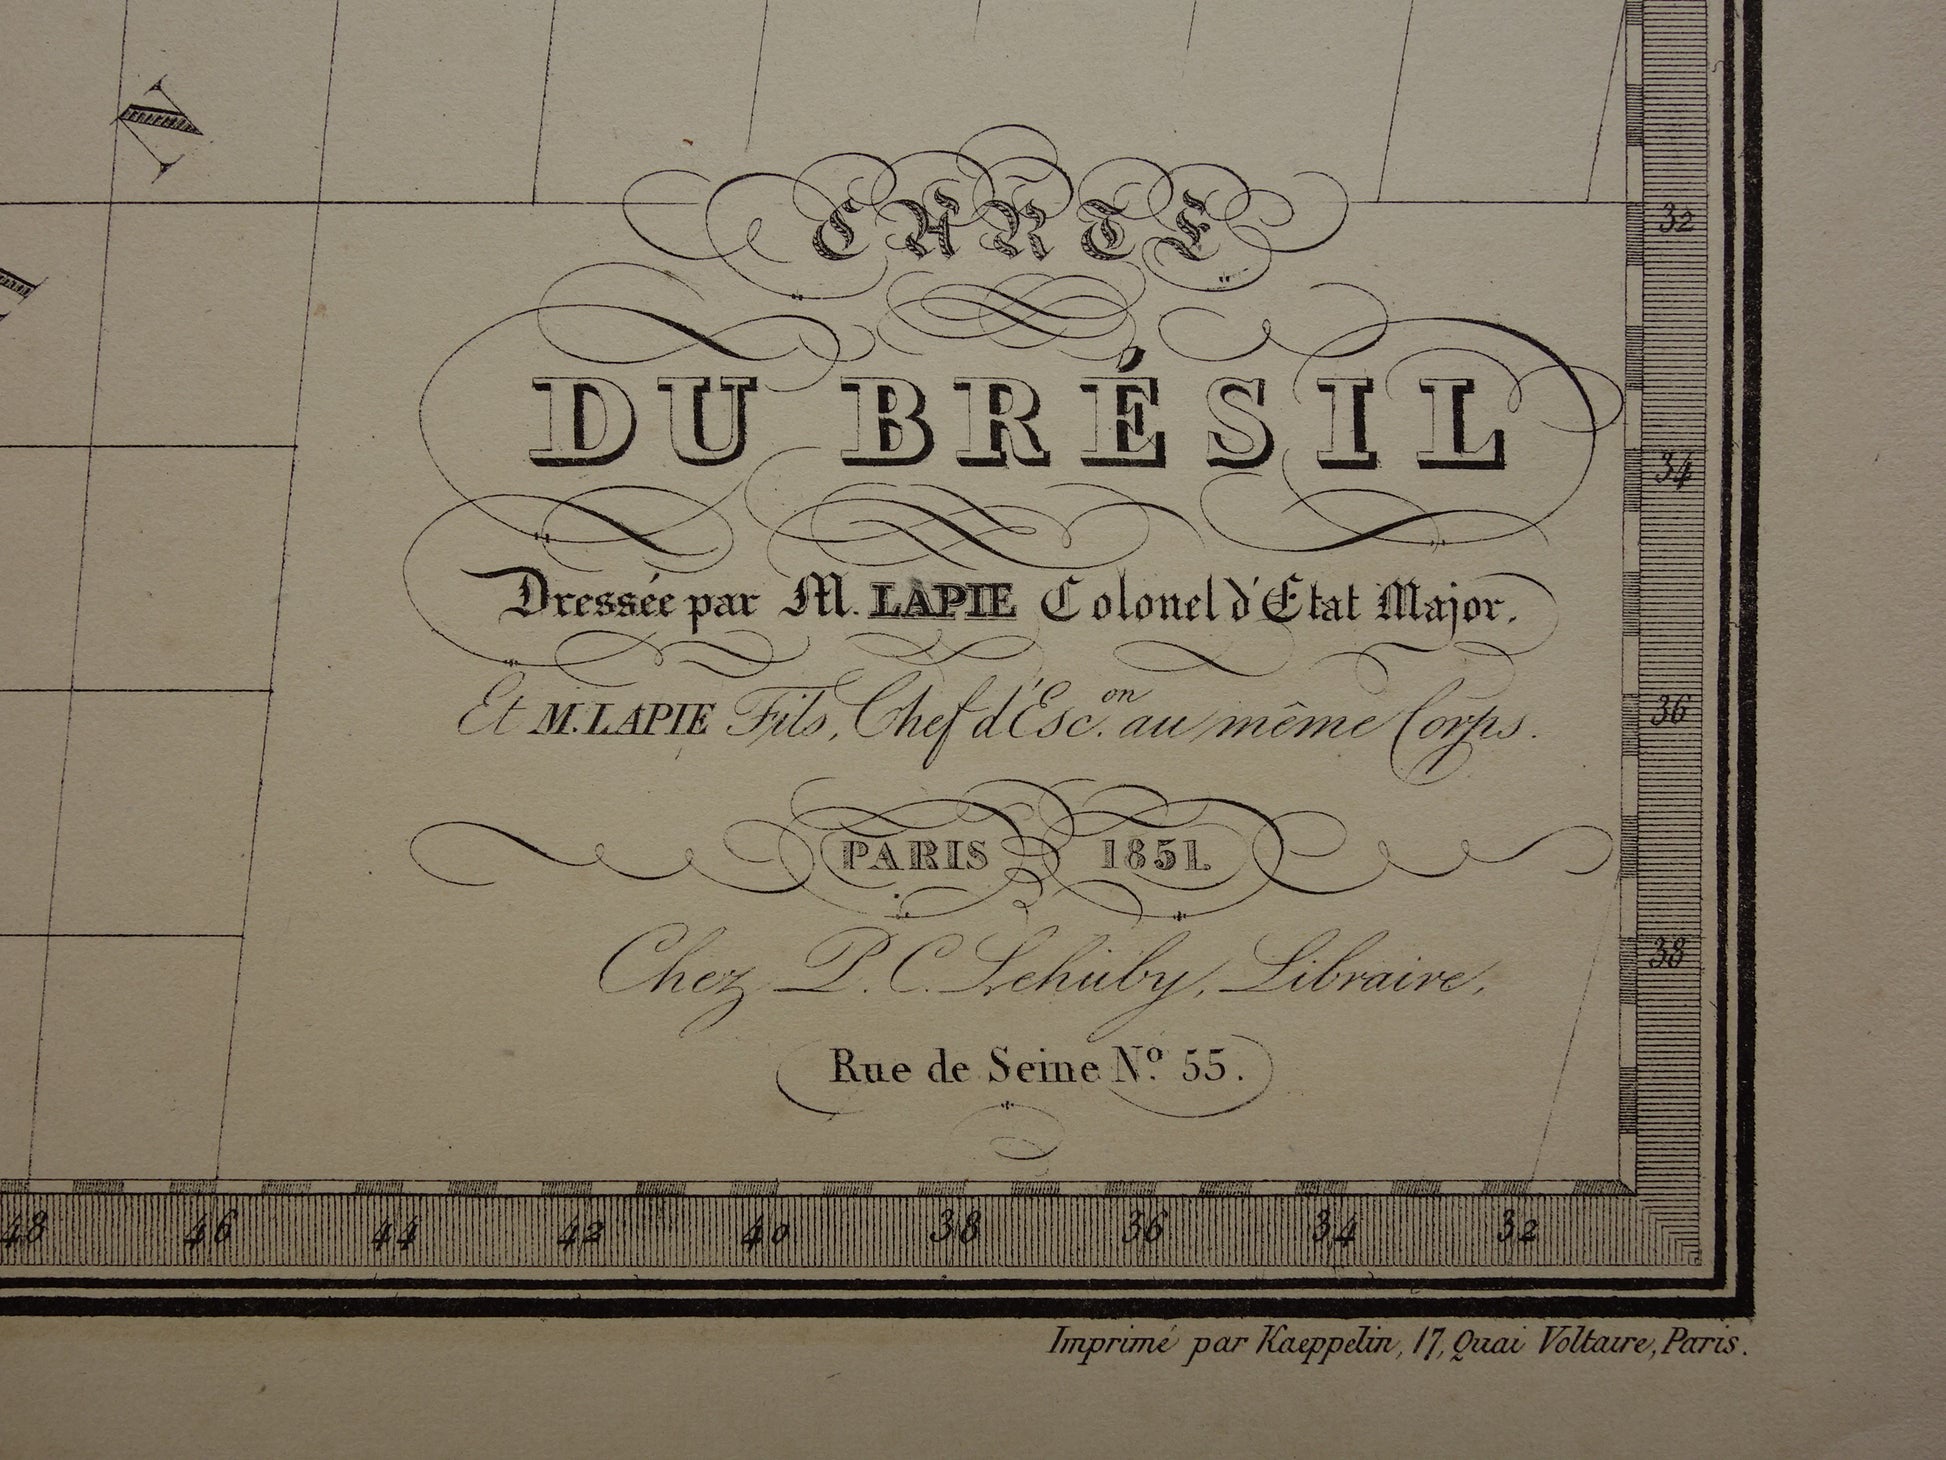 N
CARTE
DU BRÉSIL
Dressée par M. LAPIE Colonel d'Etat Major.
Et M. LAPIE Fils, Chef d'Esc.on au même Corps.
PARIS 1851.
Chez P. C. Lehuby, Libraire,
Rue de Seine Nº. 55.
32
34
36
38
48 46 44 42 40 38 36 34 32
Imprimé par Kaeppelin, 17, Quai Voltaire, Paris.